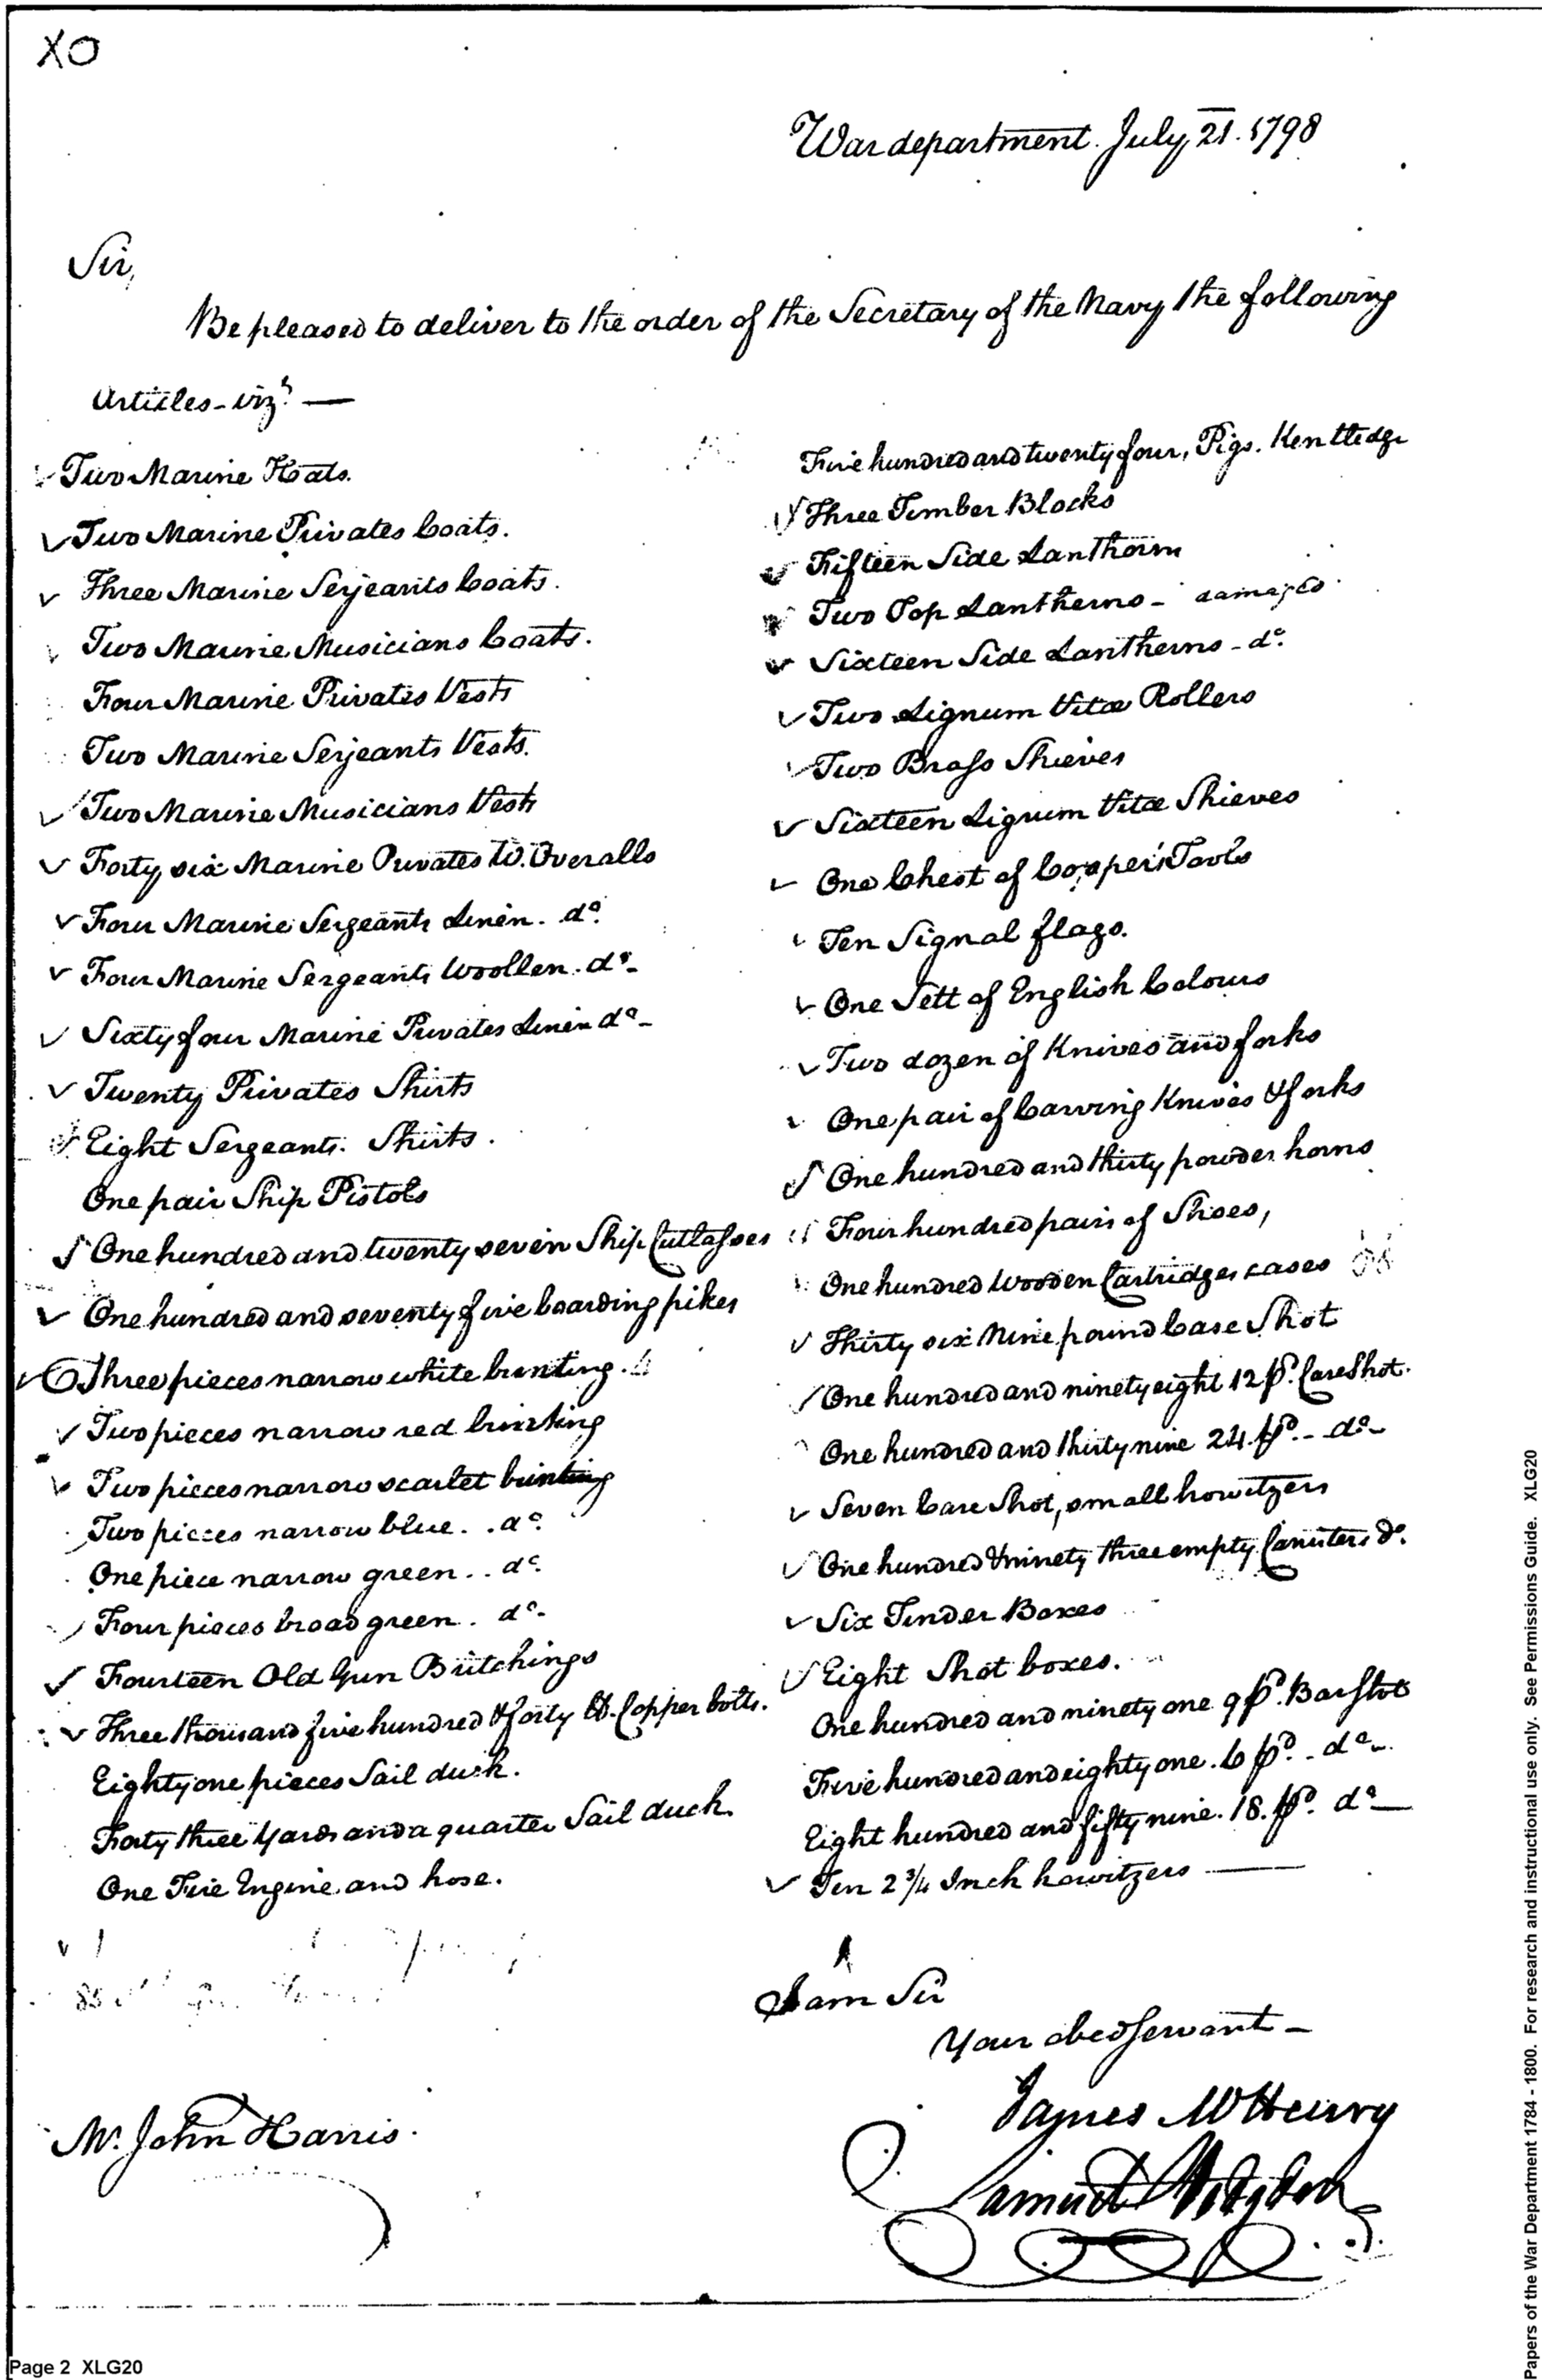 XO
War department. July 21. 1798
Sir,
Be pleased to deliver to the order of the Secretary of the Navy the following
Articles - vizt —
Two Marine Hats.
Two Marine Privates Coats.
Three Marine Serjeants Coats.
Two Marine Musicians Coats.
Four Marine Privates Vests
Two Marine Serjeants Vests.
Two Marine Musicians Vests
Forty six Marine Privates W. Overalls
Four Marine Sergeants Linen. do.
Four Marine Sergeants Woollen. do. -
Sixty four Marine Privates Linen do -
Twenty Privates Shirts
Eight Sergeants. Shirts.
One pair Ship Pistols
One hundred and twenty seven Ship Cutlasses
One hundred and seventy five boarding pikes
Three pieces narrow white bunting.
Two pieces narrow red bunting
Two pieces narrow scarlet bunting
Two pieces narrow blue. . do.
One piece narrow green. . do.
Four pieces broad green. do. -
Fourteen Old Gun Britchings
Three thousand five hundred & forty lb. Copper bolts.
Eighty one pieces Sail duck.
Forty three Yards and a quarter Sail duck
One Fire Engine and hose.
Five hundred and twenty four, Pigs. Kentledge
Three Timber Blocks
Fifteen Side Lanthorn
Two Top Lantherns - damaged
Sixteen Side Lantherns - do.
Two Lignum Vitæ Rollers
Two Brass Shieves
Sixteen Lignum Vitæ Shieves
One Chest of Cooper's Tools
Ten Signal flags.
One Sett of English Colours
Two dozen of Knives and forks
One pair of Carving Knives & forks
One hundred and thirty powder horns
Four hundred pairs of Shoes,
One hundred Wooden Cartridges cases
Thirty six Nine pound Case Shot
One hundred and ninety eight 12 pd. Case Shot.
One hundred and thirty nine 24. pd. - do -
Seven Case Shot, small howitzers
One hundred & ninety three empty Canisters do.
Six Tinder Boxes
Eight Shot boxes.
One hundred and ninety one 9 pd. Bar Shot
Five hundred and eighty one. 6 pd. - do -
Eight hundred and fifty nine. 18. pd. do —
Ten 2 3/4 Inch howitzers —
I am Sir
Your obed Servant -
James McHenry
Samuel Hodgdon
Mr. John Harris.
Page 2 XLG20
Papers of the War Department 1784 - 1800. For research and instructional use only. See Permissions Guide. XLG20